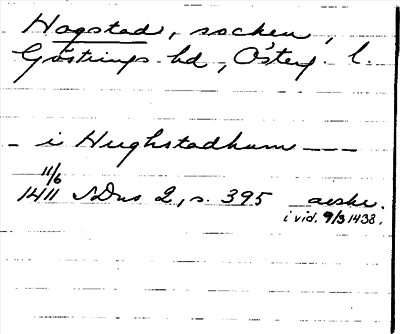 Hogstad, socken,
Göstrings hd, Österg. l.
– i Hughstadhum – –
11/6
1411 SDns 2, s. 395 avskr.
i vid. 9/3 1438.